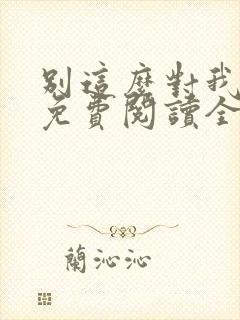 別這麼對我
免費閱讀全
蘭沁沁